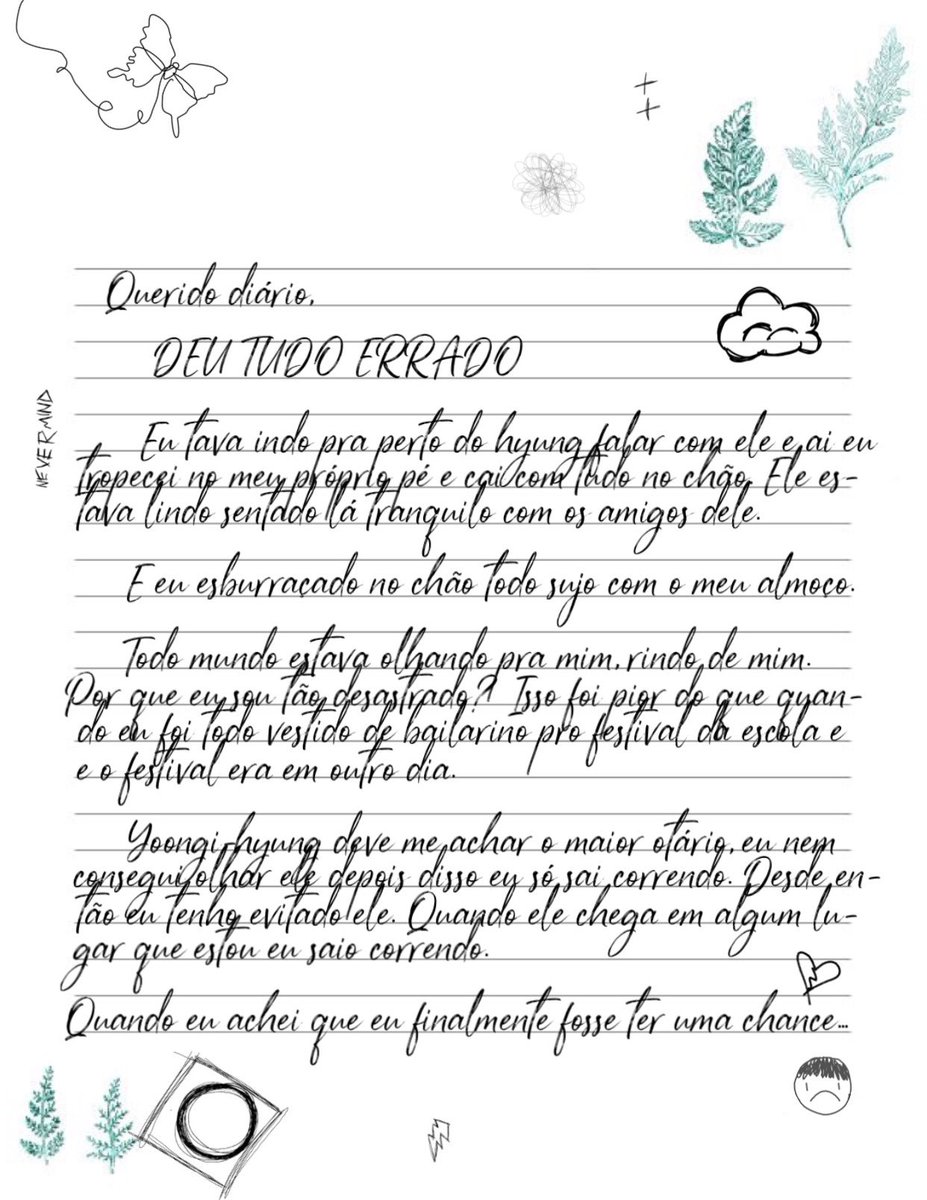 Querido diário,
DEU TUDO ERRADO
NEVERMIND
Eu tava indo pra perto do hyung falar com ele e ai eu
tropecei no meu próprio pé e cai com tudo no chão. Ele es-
tava lindo sentado lá tranquilo com os amigos dele.
E eu esburraçado no chão todo sujo com o meu almoço.
Todo mundo estava olhando pra mim, rindo de mim.
Por que eu sou tão desastrado? Isso foi pior do que quan-
do eu foi todo vestido de bailarino pro festival da escola e
e o festival era em outro dia.
Yoongi-hyung deve me achar o maior otário, eu nem
consegui olhar ele depois disso eu só sai correndo. Desde en-
tão eu tenho evitado ele. Quando ele chega em algum lu-
gar que estou eu saio correndo.
Quando eu achei que eu finalmente fosse ter uma chance...